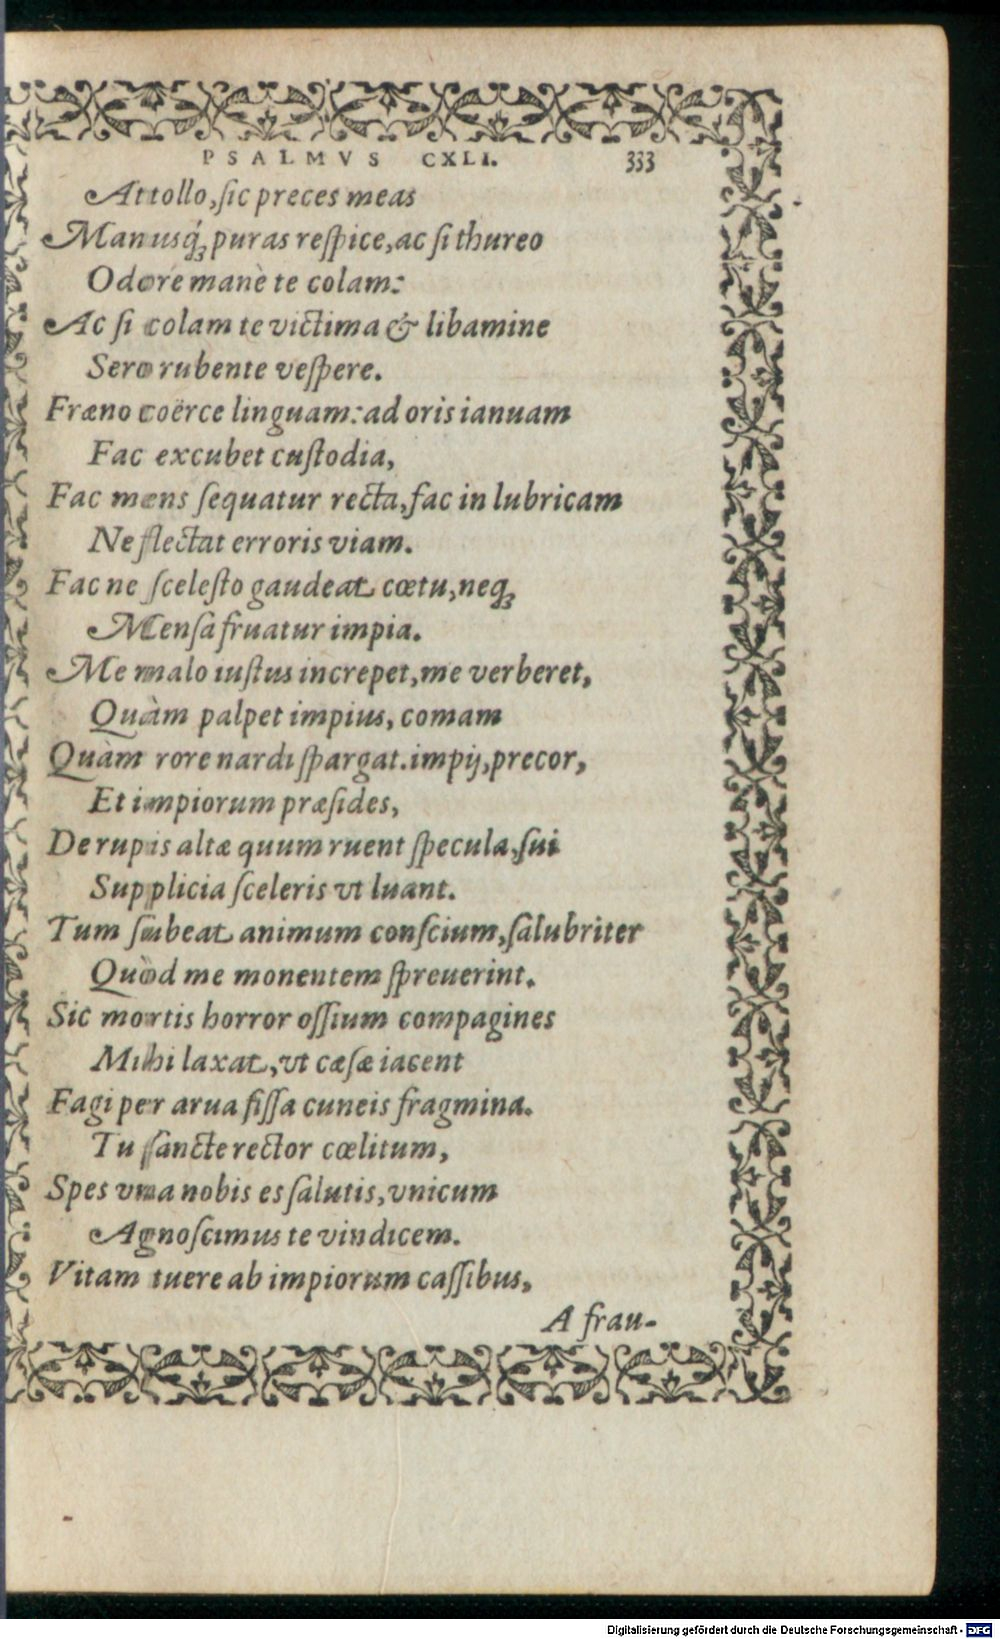 PSALMVS CXLI. 333
Attollo, ſic preces meas
Manusq́; puras reſpice, ac ſi thureo
Odore manè te colam:
Ac ſi colam te victima & libamine
Sero rubente veſpere.
Fræno coërce linguam: ad oris ianuam
Fac excubet cuſtodia,
Fac mens ſequatur recta, fac in lubricam
Ne flectat erroris viam.
Fac ne ſceleſto gaudeat cœtu, neq;
Menſa fruatur impia.
Me malo iuſtus increpet, me verberet,
Quàm palpet impius, comam
Quàm rore nardi ſpargat. impij, precor,
Et impiorum præſides,
De rupis altæ quum ruent ſpecula, ſui
Supplicia ſceleris vt luant.
Tum ſubeat animum conſcium, ſalubriter
Quòd me monentem ſpreuerint.
Sic mortis horror oſſium compagines
Mihi laxat, vt cæſæ iacent
Fagi per arua fiſſa cuneis fragmina.
Tu ſancte rector cœlitum,
Spes vna nobis es ſalutis, vnicum
Agnoſcimus te vindicem.
Vitam tuere ab impiorum caſſibus,
A frau-
Digitalisierung gefördert durch die Deutsche Forschungsgemeinschaft - DFG